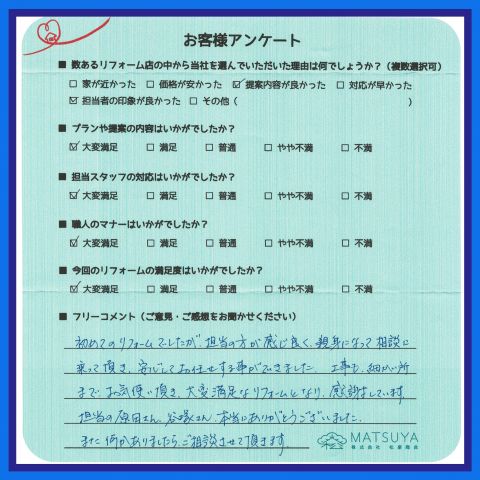 お客様アンケート
■ 数あるリフォーム店の中から当社を選んでいただいた理由は何でしょうか?(複数選択可)
□ 家が近かった □ 価格が安かった ☑ 提案内容が良かった □ 対応が早かった
☑ 担当者の印象が良かった □ その他( )
■ プランや提案の内容はいかがでしたか?
☑ 大変満足 □ 満足 □ 普通 □ やや不満 □ 不満
■ 担当スタッフの対応はいかがでしたか?
☑ 大変満足 □ 満足 □ 普通 □ やや不満 □ 不満
■ 職人のマナーはいかがでしたか?
☑ 大変満足 □ 満足 □ 普通 □ やや不満 □ 不満
■ 今回のリフォームの満足度はいかがでしたか?
☑ 大変満足 □ 満足 □ 普通 □ やや不満 □ 不満
■ フリーコメント(ご意見・ご感想をお聞かせください)
初めてのリフォームでしたが、担当の方が感じ良く、親身になって相談に
乗って頂き、安心してお任せする事ができました。工事も、細かい所
まで、お気使い頂き、大変満足なリフォームとなり、感謝しています。
担当の原田さん、谷塚さん、本当にありがとうございました。
また何かありましたら、ご相談させて頂きます。
MATSUYA
株式会社